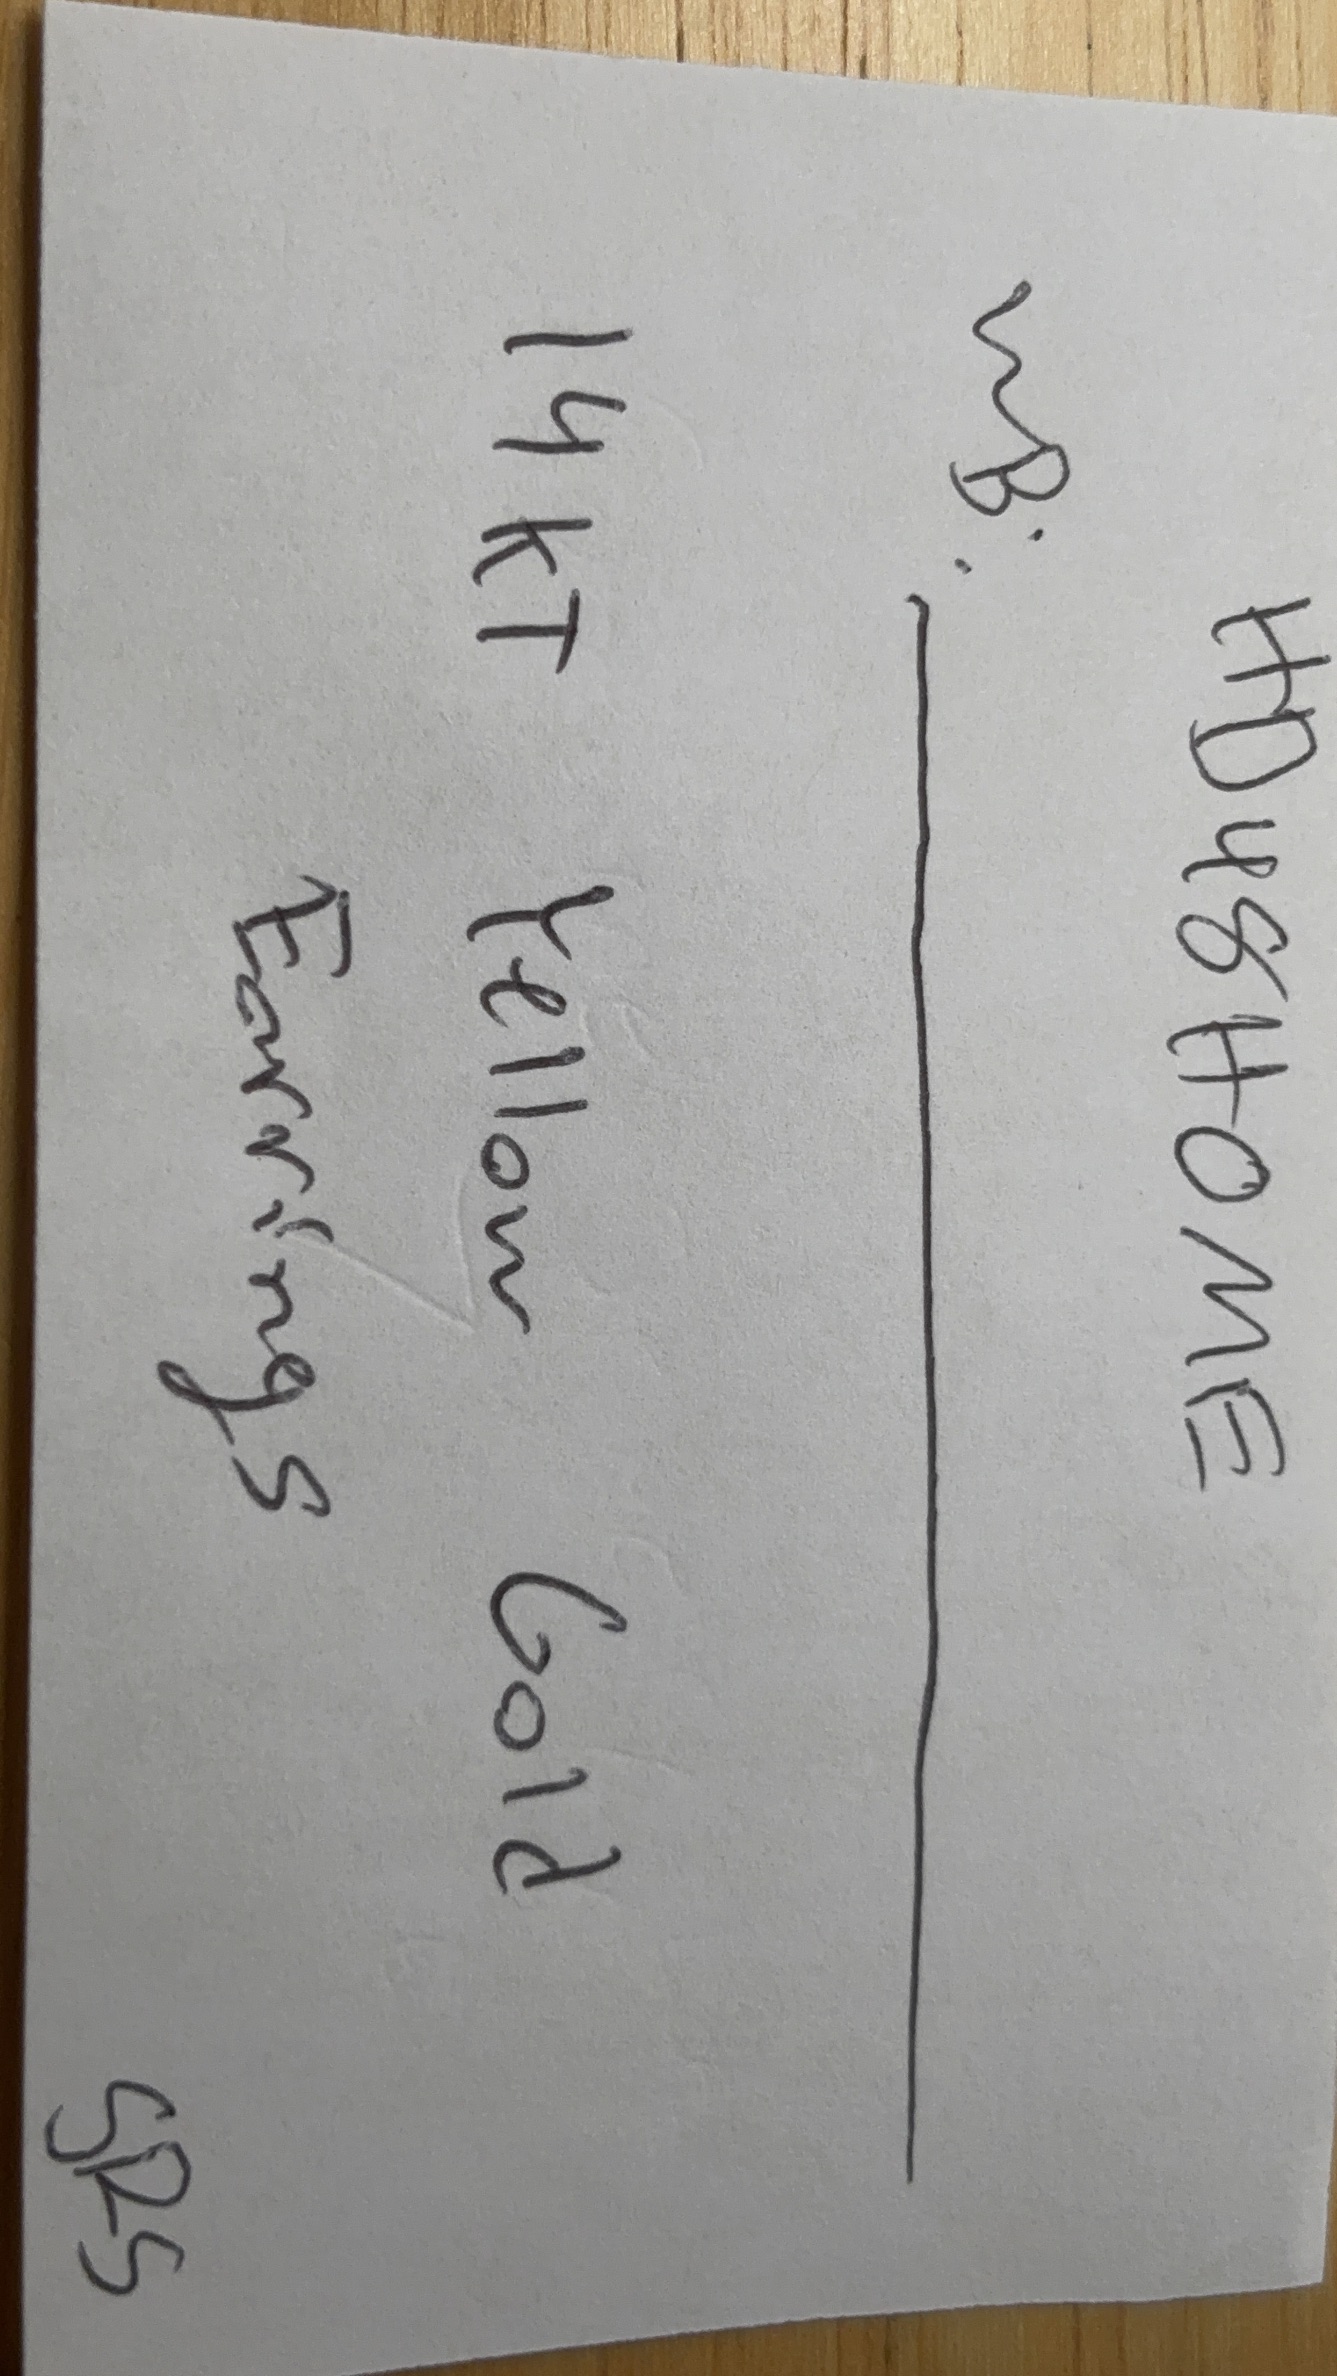 HD48HOME
WB:
14KT Yellow Gold
Earrings
SRS